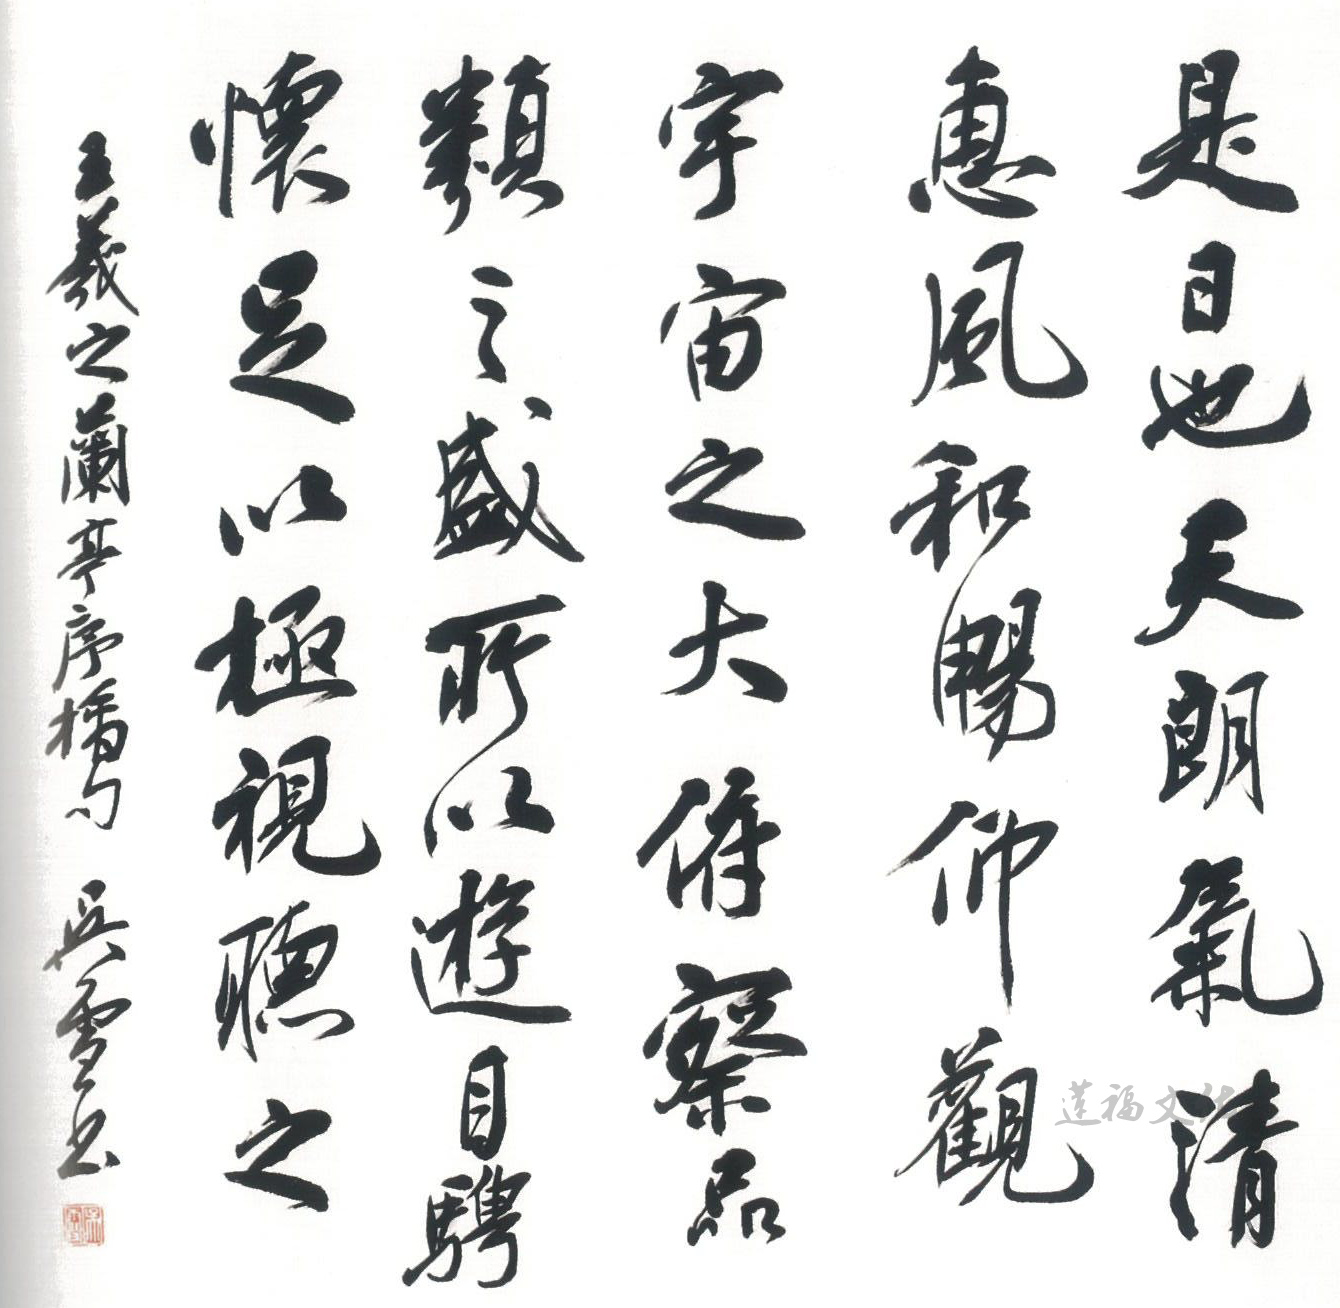 是日也天朗氣清
惠風和暢仰觀
宇宙之大俯察品
類之盛所以遊目騁
懷足以極視聽之
王羲之蘭亭序摘句 吳雪書
蓮福文化